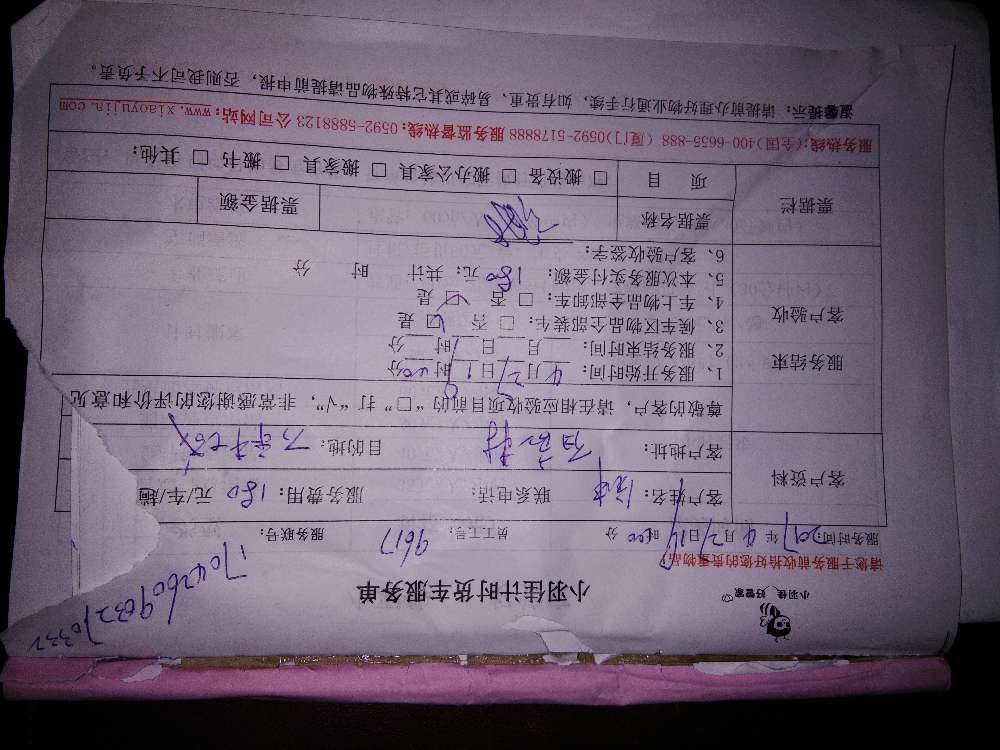 小羽佳 好管家
小羽佳计时货车服务单
请您于服务前收拾好您的贵重物品
服务时间: 2017 年 4 月 27 日 14 时 00 分 员工工号: 9617 服务联号:
客户资料
客户姓名: 联系电话: 服务费用: 180 元/车/趟
客户地址: 目的地:
尊敬的客户，请在相应验收项目前的“□”打“√”，非常感谢您的评价和意见
服务结束
客户验收
1、服务开始时间: 4 月 27 日 时 分
2、服务结束时间: 月 日 时 分
3、候车区物品全部装车: □ 否 ☑ 是
4、车上物品全部卸车: □ 否 ☑ 是
5、本次服务实付金额: 180 元; 共计 时 分
6、客户验收签字:
票据栏
票据名称 票据金额
项 目 □ 搬设备 □ 搬办公家具 □ 搬家具 □ 搬书 □ 其他:
服务热线:(全国)400-6655-888 (厦门)0592-5178888 服务监督热线:0592-5888123 公司网站:www.xiaoyujia.com
温馨提示: 请提前办理好物业通行手续，如有贵重、易碎或其它特殊物品请提前申报，否则我司不予负责。